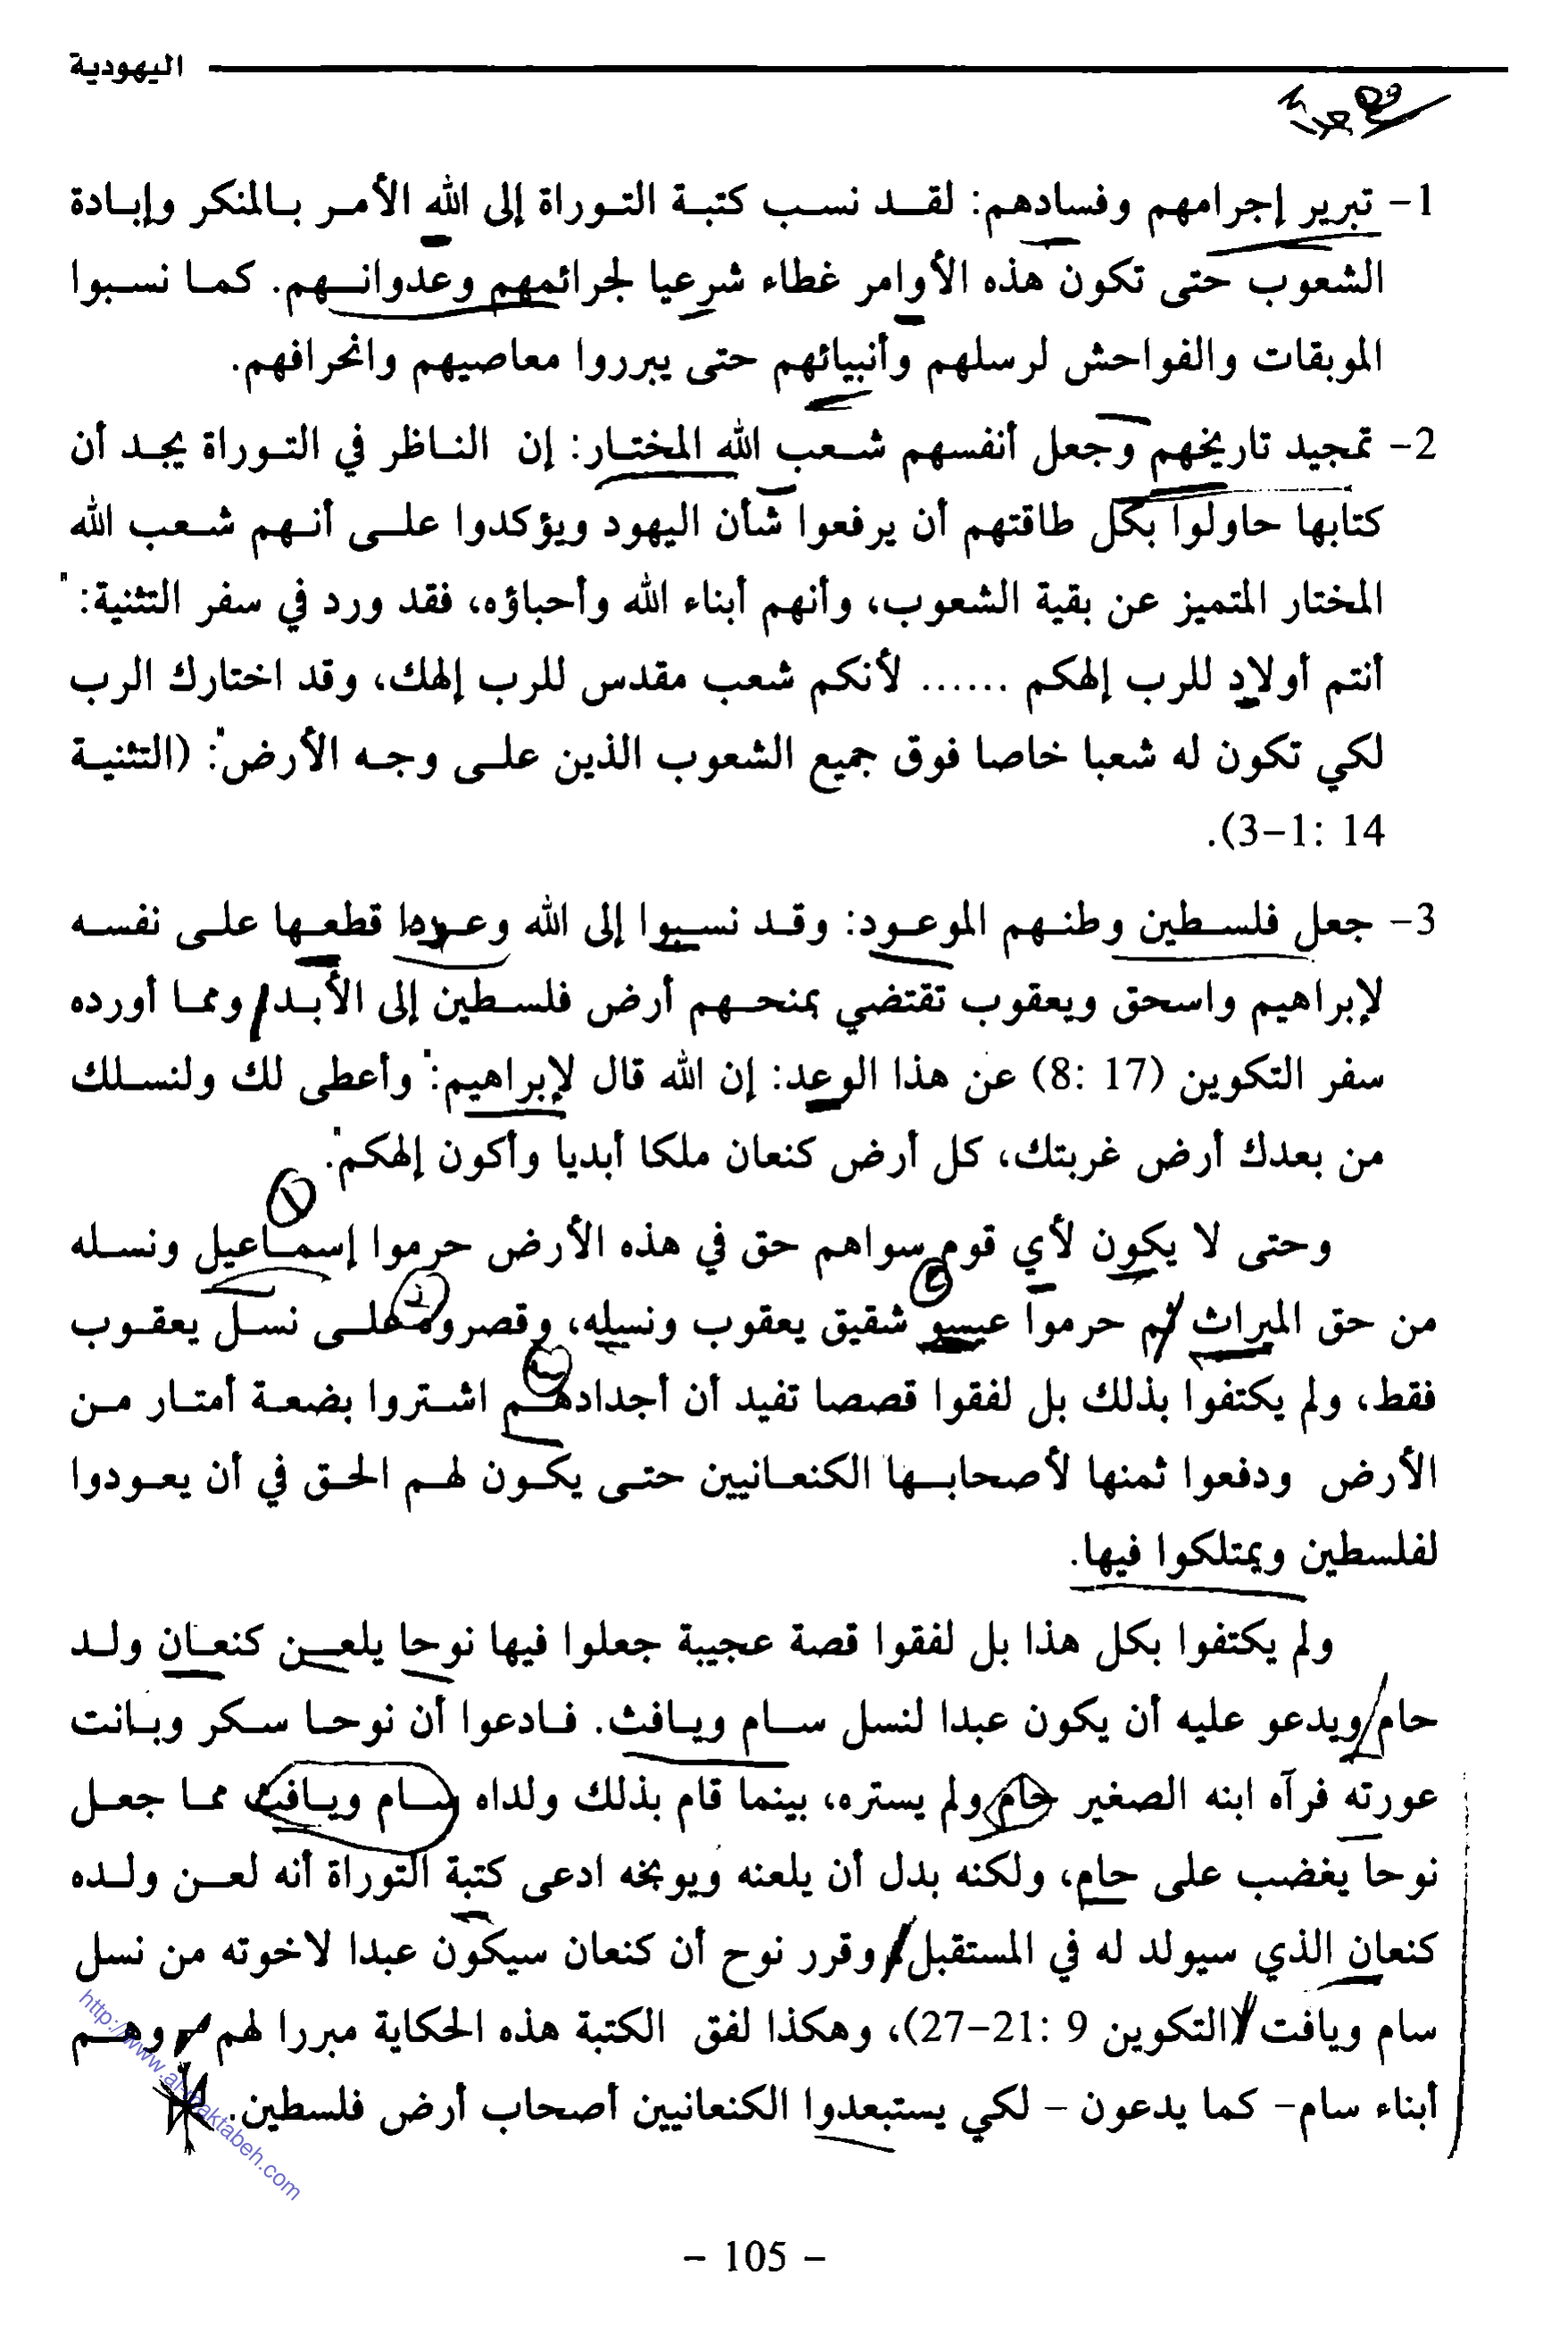 اليهودية
1- تبرير إجرامهم وفسادهم: لقد نسب كتبة التوراة إلى الله الأمر بالمنكر وإبادة
الشعوب حتى تكون هذه الأوامر غطاء شرعيا لجرائمهم وعدوانهم. كما نسبوا
الموبقات والفواحش لرسلهم وأنبيائهم حتى يبرروا معاصيهم وانحرافهم.
2- تمجيد تاريخهم وجعل أنفسهم شعب الله المختار: إن الناظر في التوراة يجد أن
كتابها حاولوا بكل طاقتهم أن يرفعوا شأن اليهود ويؤكدوا على أنهم شعب الله
المختار المتميز عن بقية الشعوب، وأنهم أبناء الله وأحباؤه، فقد ورد في سفر التثنية: "
أنتم أولاد للرب إلهكم ...... لأنكم شعب مقدس للرب إلهك، وقد اختارك الرب
لكي تكون له شعبا خاصا فوق جميع الشعوب الذين على وجه الأرض": (التثنية
14 :1-3).
3- جعل فلسطين وطنهم الموعود: وقد نسبوا إلى الله وعودا قطعها على نفسه
لإبراهيم واسحق ويعقوب تقتضي بمنحهم أرض فلسطين إلى الأبد ومما أورده
سفر التكوين (17 :8) عن هذا الوعد: إن الله قال لإبراهيم:" وأعطى لك ولنسلك
من بعدك أرض غربتك، كل أرض كنعان ملكا أبديا وأكون إلهكم".
وحتى لا يكون لأي قوم سواهم حق في هذه الأرض حرموا إسماعيل ونسله
من حق الميراث ثم حرموا عيسو شقيق يعقوب ونسله، وقصروه على نسل يعقوب
فقط، ولم يكتفوا بذلك بل لفقوا قصصا تفيد أن أجدادهم اشتروا بضعة أمتار من
الأرض ودفعوا ثمنها لأصحابها الكنعانيين حتى يكون لهم الحق في أن يعودوا
لفلسطين ويمتلكوا فيها.
ولم يكتفوا بكل هذا بل لفقوا قصة عجيبة جعلوا فيها نوحا يلعن كنعان ولد
حام ويدعو عليه أن يكون عبدا لنسل سام ويافث. فادعوا أن نوحا سكر وبانت
عورته فرآه ابنه الصغير حام ولم يستره، بينما قام بذلك ولداه سام ويافث مما جعل
نوحا يغضب على حام، ولكنه بدل أن يلعنه ويوبخه ادعى كتبة التوراة أنه لعن ولده
كنعان الذي سيولد له في المستقبل وقرر نوح أن كنعان سيكون عبدا لاخوته من نسل
سام ويافت (التكوين 9 :21-27)، وهكذا لفق الكتبة هذه الحكاية مبررا لهم - وهم
أبناء سام- كما يدعون - لكي يستبعدوا الكنعانيين أصحاب أرض فلسطين.
http://www.al-maktabeh.com
- 105 -